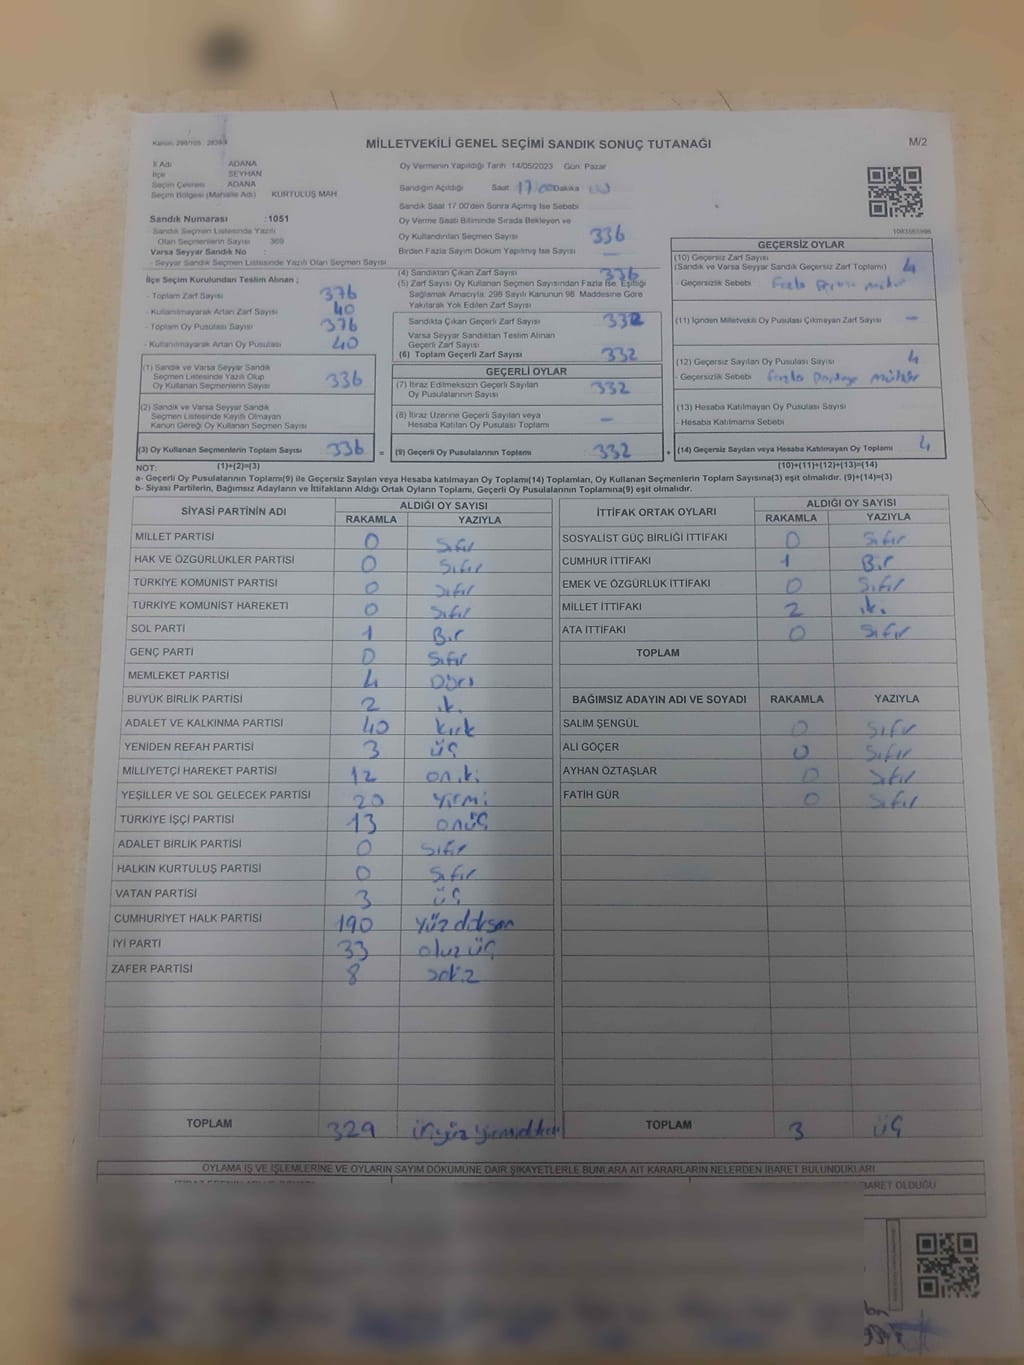 MİLLETVEKİLİ GENEL SEÇİMİ SANDIK SONUÇ TUTANAĞI
M/2
İl Adı ADANA
İlçe SEYHAN
Seçim Çevresi ADANA
Seçim Bölgesi (Mahalle Adı) KURTULUŞ MAH
Sandık Numarası :1051
Sandık Seçmen Listesinde Yazılı
Olan Seçmenlerin Sayısı 369
Varsa Seyyar Sandık No :
- Seyyar Sandık Seçmen Listesinde Yazılı Olan Seçmen Sayısı
Oy Vermenin Yapıldığı Tarih 14/05/2023 Gün: Pazar
Sandığın Açıldığı Saat 17:00 Dakika
Sandık Saat 17.00'den Sonra Açımış İse Sebebi
Oy Verme Saati Bitiminde Sırada Bekleyen ve
Oy Kullandırılan Seçmen Sayısı 336
Birden Fazla Sayım Döküm Yapılmış İse Sayısı —
İlçe Seçim Kurulundan Teslim Alınan ;
- Toplam Zarf Sayısı 376
- Kullanılmayarak Artan Zarf Sayısı 40
- Toplam Oy Pusulası Sayısı 376
- Kullanılmayarak Artan Oy Pusulası 40
(1) Sandık ve Varsa Seyyar Sandık
Seçmen Listesinde Yazılı Olup
Oy Kullanan Seçmenlerin Sayısı 336
(2) Sandık ve Varsa Seyyar Sandık
Seçmen Listesinde Kayıtlı Olmayan
Kanun Gereği Oy Kullanan Seçmen Sayısı
(3) Oy Kullanan Seçmenlerin Toplam Sayısı 336 =
(4) Sandıktan Çıkan Zarf Sayısı 336
(5) Zarf Sayısı Oy Kullanan Seçmen Sayısından Fazla İse, Eşitliği
Sağlamak Amacıyla, 298 Sayılı Kanunun 98. Maddesine Göre
Yakılarak Yok Edilen Zarf Sayısı
Sandıkta Çıkan Geçerli Zarf Sayısı 332
Varsa Seyyar Sandıktan Teslim Alınan
Geçerli Zarf Sayısı
(6) Toplam Geçerli Zarf Sayısı 332
GEÇERLİ OYLAR
(7) İtiraz Edilmeksizin Geçerli Sayılan
Oy Pusulalarının Sayısı 332
(8) İtiraz Üzerine Geçerli Sayılan veya
Hesaba Katılan Oy Pusulası Toplamı —
(9) Geçerli Oy Pusulalarının Toplamı 332 +
GEÇERSİZ OYLAR
(10) Geçersiz Zarf Sayısı
(Sandık ve Varsa Seyyar Sandık Geçersiz Zarf Toplamı) 4
- Geçersizlik Sebebi Fazla mühür
(11) İçinden Milletvekili Oy Pusulası Çıkmayan Zarf Sayısı —
(12) Geçersiz Sayılan Oy Pusulası Sayısı 4
- Geçersizlik Sebebi Fazla mühür
(13) Hesaba Katılmayan Oy Pusulası Sayısı
- Hesaba Katılmama Sebebi
(14) Geçersiz Sayılan veya Hesaba Katılmayan Oy Toplamı 4
NOT: (1)+(2)=(3) (10)+(11)+(12)+(13)=(14)
a- Geçerli Oy Pusulalarının Toplamı(9) ile Geçersiz Sayılan veya Hesaba katılmayan Oy Toplamı(14) Toplamları, Oy Kullanan Seçmenlerin Toplam Sayısına(3) eşit olmalıdır. (9)+(14)=(3)
b- Siyasi Partilerin, Bağımsız Adayların ve İttifakların Aldığı Ortak Oyların Toplamı, Geçerli Oy Pusulalarının Toplamına(9) eşit olmalıdır.
SİYASİ PARTİNİN ADI ALDIĞI OY SAYISI
RAKAMLA YAZIYLA
MİLLET PARTİSİ 0 Sıfır
HAK VE ÖZGÜRLÜKLER PARTİSİ 0 Sıfır
TÜRKİYE KOMÜNİST PARTİSİ 0 Sıfır
TÜRKİYE KOMÜNİST HAREKETİ 0 Sıfır
SOL PARTİ 1 Bir
GENÇ PARTİ 0 Sıfır
MEMLEKET PARTİSİ 4 Dört
BÜYÜK BİRLİK PARTİSİ 2 iki
ADALET VE KALKINMA PARTİSİ 40 kırk
YENİDEN REFAH PARTİSİ 3 üç
MİLLİYETÇİ HAREKET PARTİSİ 12 oniki
YEŞİLLER VE SOL GELECEK PARTİSİ 20 yirmi
TÜRKİYE İŞÇİ PARTİSİ 13 onüç
ADALET BİRLİK PARTİSİ 0 Sıfır
HALKIN KURTULUŞ PARTİSİ 0 Sıfır
VATAN PARTİSİ 3 üç
CUMHURİYET HALK PARTİSİ 190 yüz doksan
İYİ PARTİ 33 otuz üç
ZAFER PARTİSİ 8 sekiz
TOPLAM 329
İTTİFAK ORTAK OYLARI ALDIĞI OY SAYISI
RAKAMLA YAZIYLA
SOSYALİST GÜÇ BİRLİĞİ İTTİFAKI 0 Sıfır
CUMHUR İTTİFAKI 1 Bir
EMEK VE ÖZGÜRLÜK İTTİFAKI 0 Sıfır
MİLLET İTTİFAKI 2 iki
ATA İTTİFAKI 0 Sıfır
TOPLAM
BAĞIMSIZ ADAYIN ADI VE SOYADI RAKAMLA YAZIYLA
SALİM ŞENGÜL 0 Sıfır
ALİ GÖÇER 0 Sıfır
AYHAN ÖZTAŞLAR 0 Sıfır
FATİH GÜR 0 Sıfır
TOPLAM 3 üç
OYLAMA İŞ VE İŞLEMLERİNE VE OYLARIN SAYIM DÖKÜMÜNE DAİR ŞİKAYETLERLE BUNLARA AİT KARARLARIN NELERDEN İBARET BULUNDUKLARI